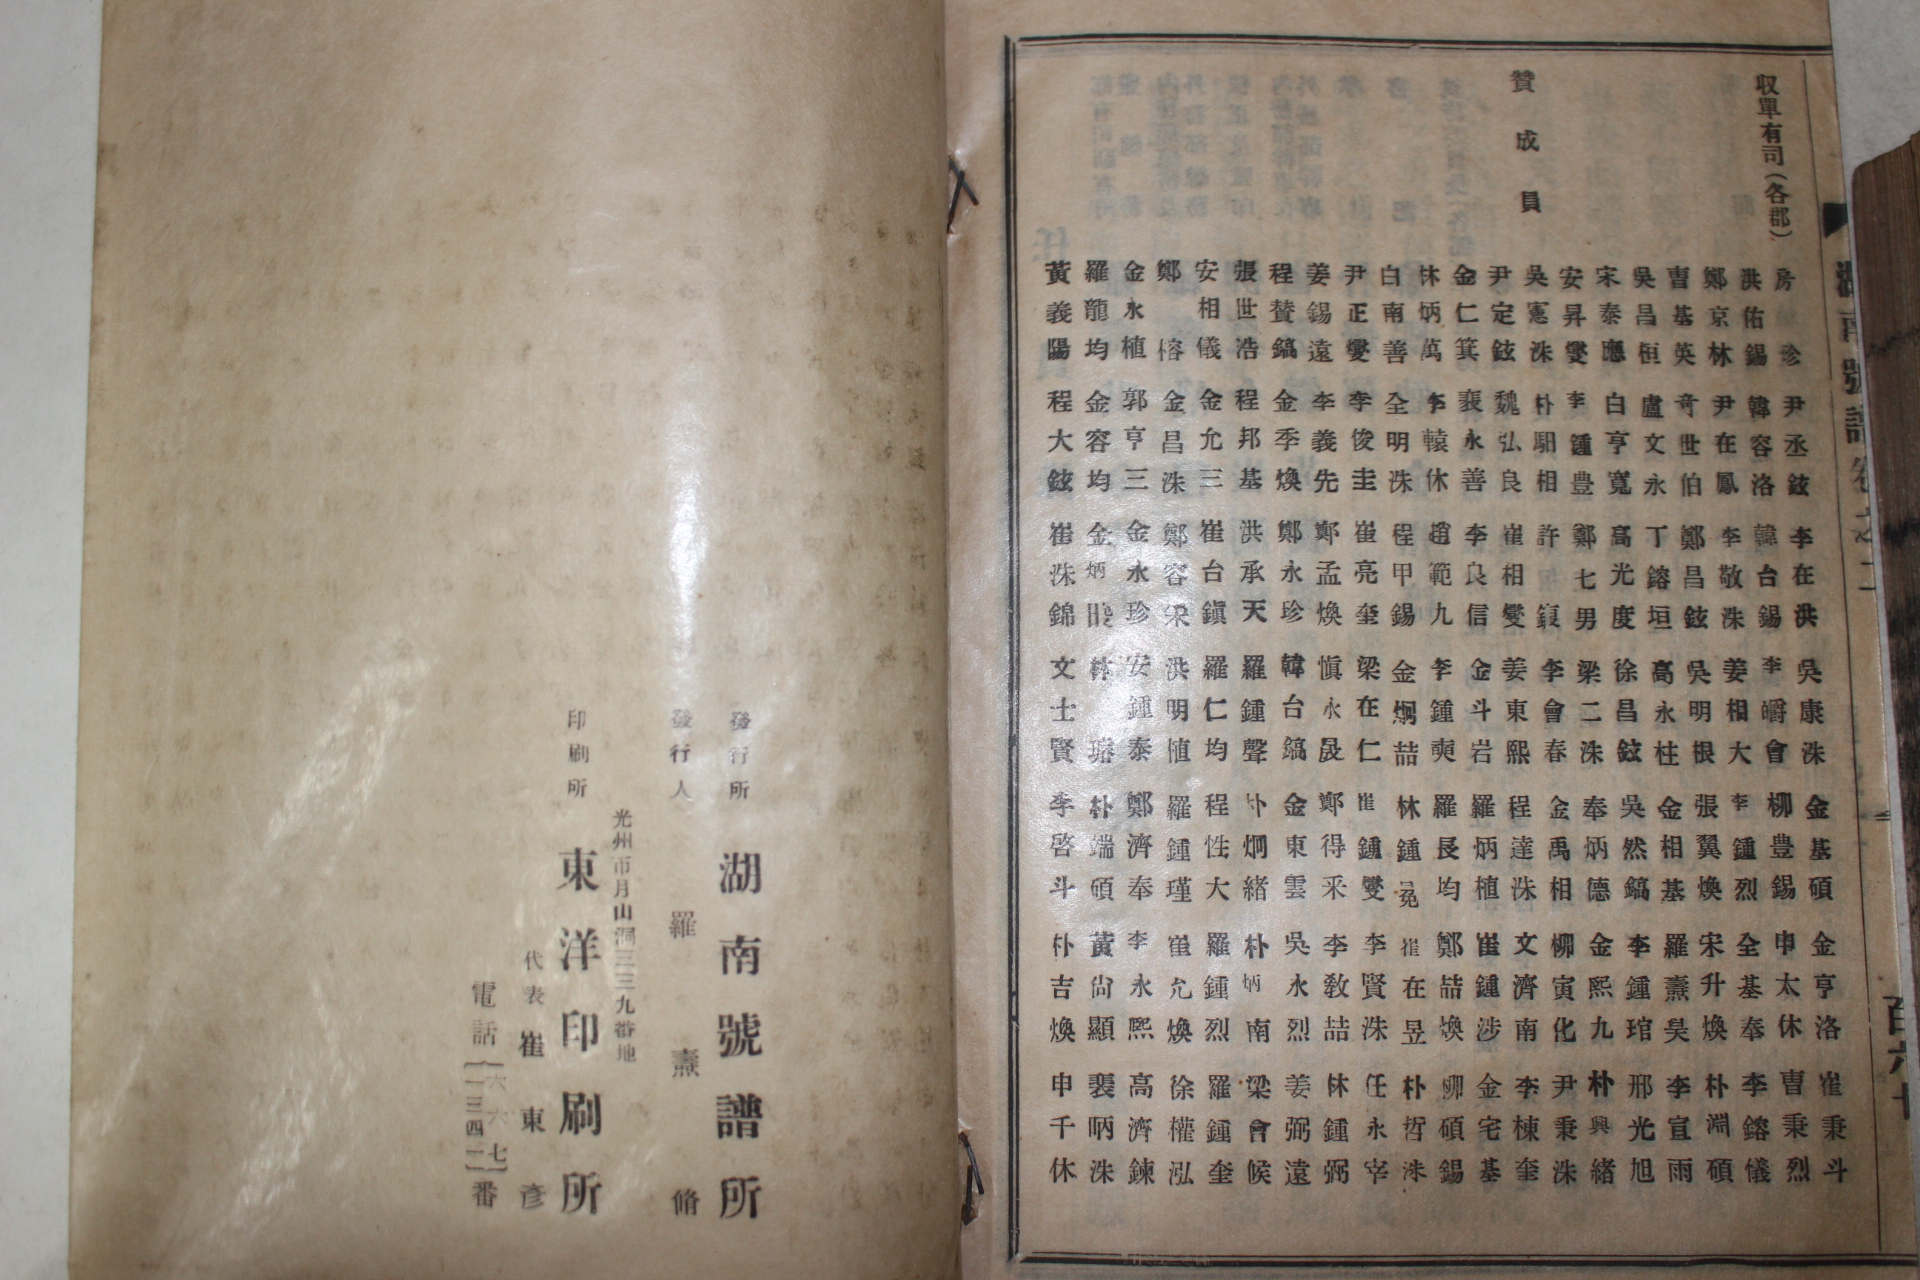 湖南號譜 卷之二 百六十
収單有司(各郡) 房 珍 尹丞鉉 李在洪 吳康洙 金基碩 金亨洛 崔秉斗
洪佑錫 韓容洛 韓台錫 李嚼會 柳豊錫 申太休 曺秉烈
鄭京林 尹在鳳 李敬洙 姜相大 李鍾烈 全基奉 李鎔儀
曺基英 奇世伯 鄭昌鉉 吳明根 張翼煥 宋升煥 朴淵碩
吳昌桓 盧文永 丁鎔垣 高永柱 金相基 羅燾昊 李宣雨
宋泰應 白亨寬 高光度 徐昌鉉 吳然鎬 李鍾琯 邢光旭
安昇燮 李鍾豊 鄭七男 梁二洙 奉炳德 金熙九 朴興緖
贊成員 吳憲洙 朴馹相 許 李會春 金禹相 柳寅化 尹秉洙
尹定鉉 魏弘良 崔相燮 姜東熙 程達洙 文濟南 李棟奎
金仁箕 裵永善 李良信 金斗岩 羅炳植 崔鍾涉 金宅基
林炳萬 李轅休 趙範九 李鍾奭 羅長均 鄭喆煥 柳碩錫
白南善 全明洙 程甲錫 金炯喆 林鍾冕 崔在昱 朴哲洙
尹正燮 李俊圭 崔亮奎 梁在仁 崔鍾燮 李賢洙 任永宰
姜錫遠 李義先 鄭孟煥 愼永晟 鄭得采 李敎喆 林鍾弼
程賛鎬 金季煥 鄭永珍 韓台鎬 金東雲 吳永烈 姜弼遠
張世浩 程邦基 洪承天 羅鍾聲 朴炯緖 朴炳南 梁會候
安相儀 金允三 崔台鎭 羅仁均 程性大 羅鍾烈 羅鍾奎
鄭榕 金昌洙 鄭容宋 洪明植 羅鍾瑾 崔允煥 徐權泓
金永植 郭亨三 金永珍 安鍾泰 鄭濟奉 李永熙 高濟鍊
羅龍均 金容均 金炳 林璿 朴端碩 黃尙顯 裵炳洙
黃義陽 程大鉉 崔洙錦 文士賢 李啓斗 朴吉煥 申千休
發行所 湖南號譜所
發行人 羅燾脩
光州市月山洞三三九番地
印刷所 東洋印刷所
代表 崔東彦
電話(六六七)(一三四一)番